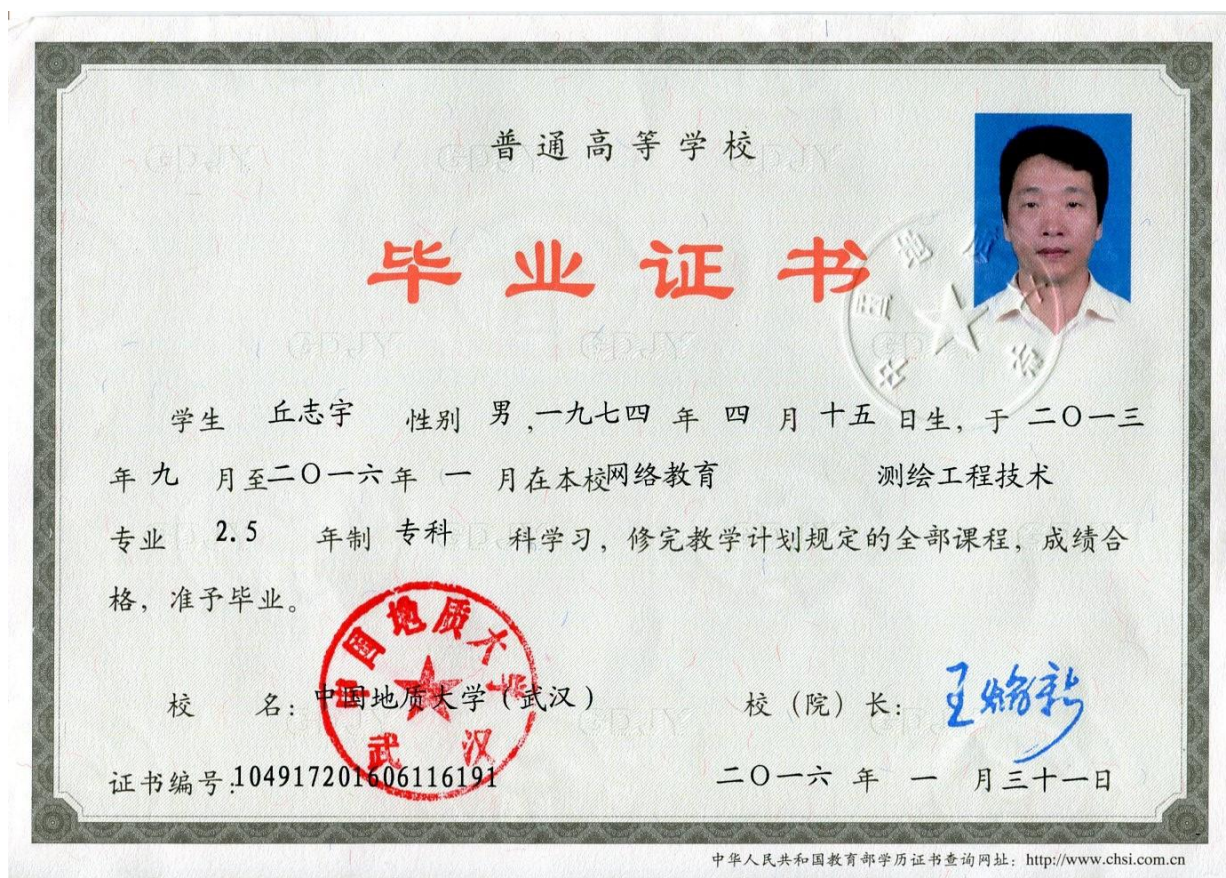 普通高等学校
毕业证书
学生 丘志宇 性别 男，一九七四 年 四 月 十五 日生，于 二〇一三
年 九 月至二〇一六年 一 月在本校网络教育 测绘工程技术
专业 2.5 年制 专科 科学习，修完教学计划规定的全部课程，成绩合
格，准予毕业。
中国地质大学
武汉
校 名：中国地质大学（武汉）
校（院）长：王焰新
证书编号：104917201606116191
二〇一六 年 一 月三十一日
中华人民共和国教育部学历证书查询网址：http://www.chsi.com.cn